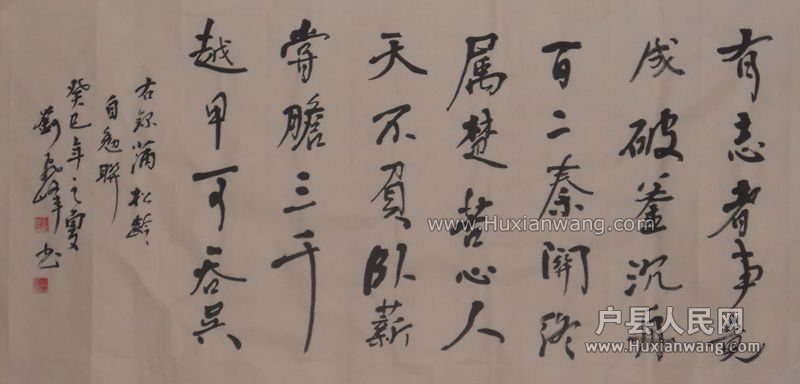 有志者事竟
成破釜沉舟
百二秦關終
属楚苦心人
天不負卧薪
嘗膽三千
越甲可吞吳
右録蒲松齡
自勉聯
癸巳年之夏
书
www.Huxianwang.com
户县人民网
www.Huxianwang.com